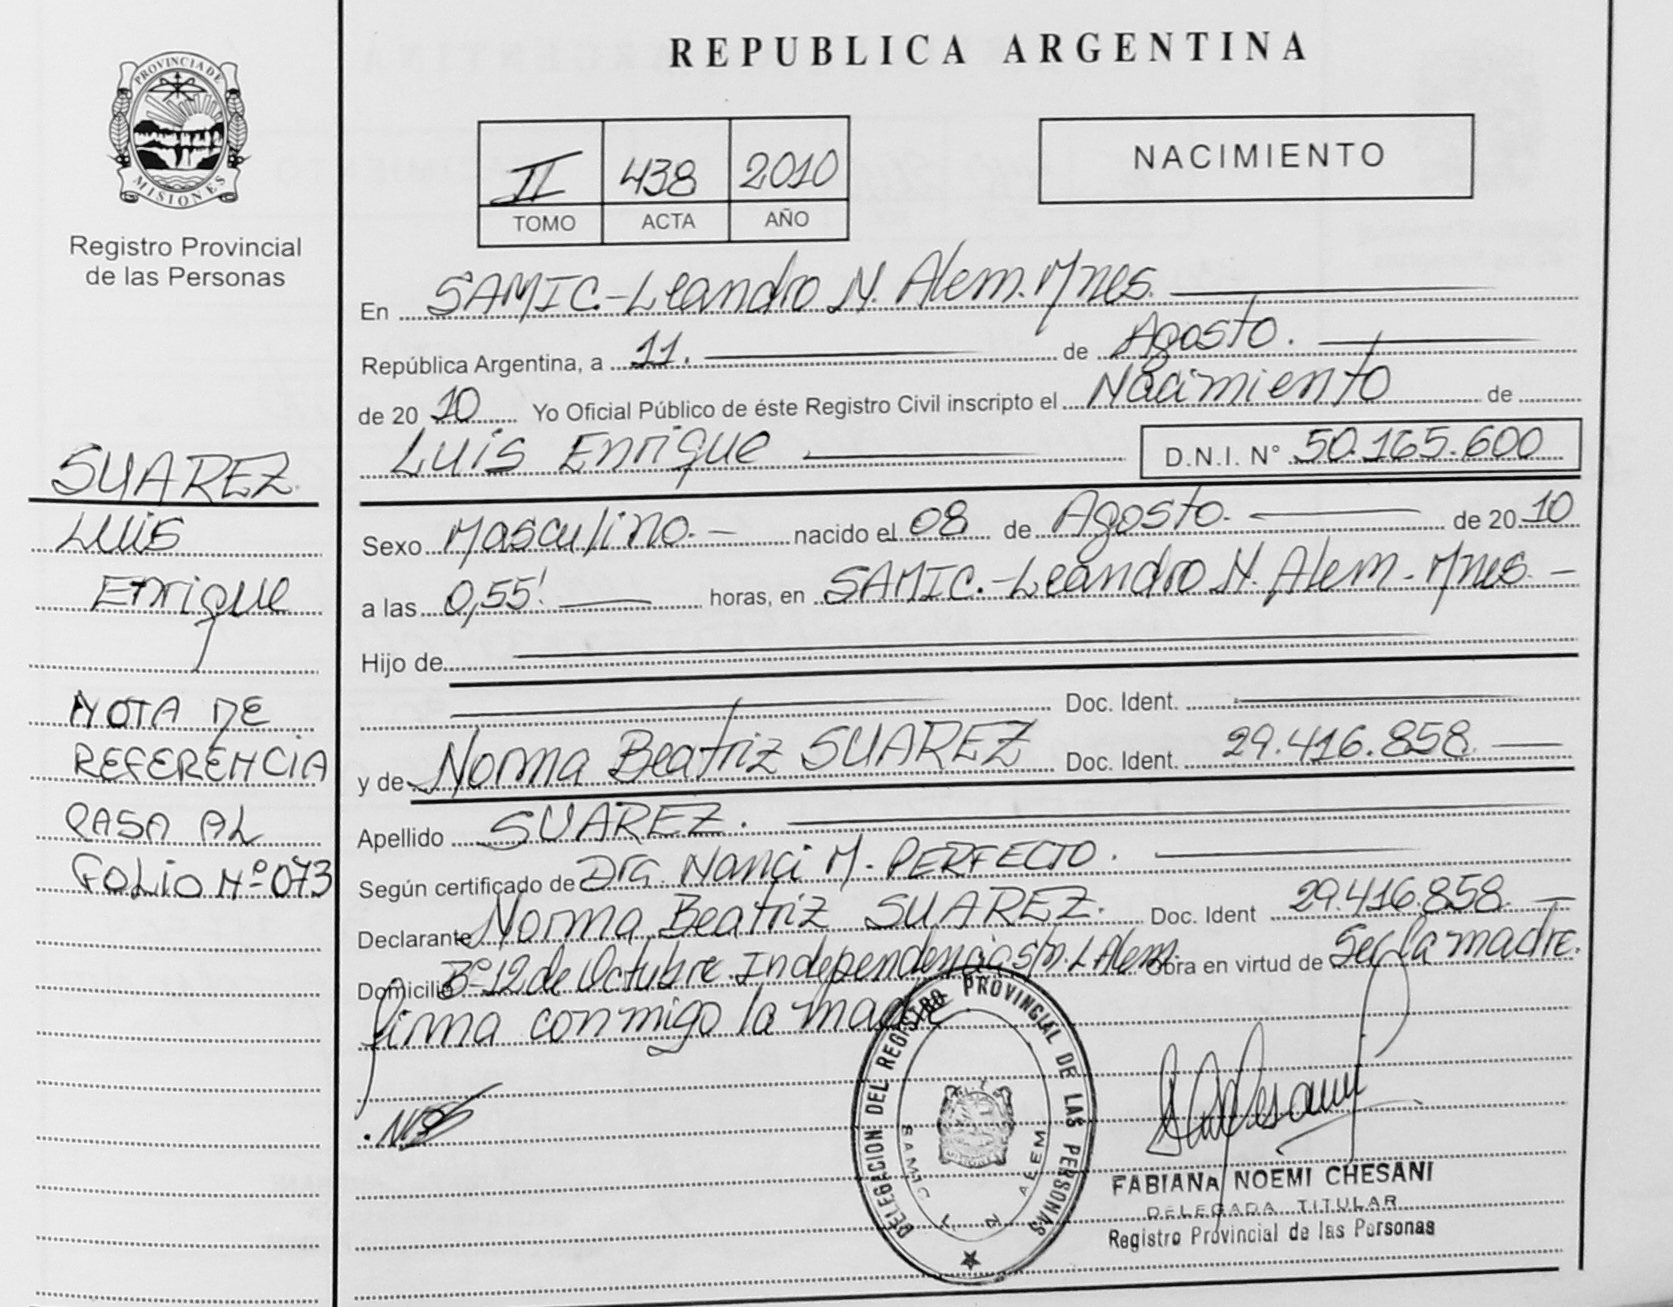 PROVINCIA DE
MISIONES
Registro Provincial
de las Personas
SUAREZ
LUIS
Enrique
NOTA DE
REFERENCIA
PASA AL
FOLIO Nº 073
REPUBLICA ARGENTINA
II 438 2010
TOMO ACTA AÑO
NACIMIENTO
En SAMIC.-Leandro N. Alem. Mnes.
República Argentina, a 11. de Agosto.
de 20 10 Yo Oficial Público de éste Registro Civil inscripto el Nacimiento de
LUIS Enrique D.N.I. N° 50.165.600
Sexo Masculino.- nacido el 08 de Agosto. de 20 10
a las 0,55' horas, en SAMIC.-Leandro N. Alem.-Mnes.-
Hijo de
Doc. Ident.
y de Norma Beatriz SUAREZ Doc. Ident. 29.416.858
Apellido SUAREZ.
Según certificado de Dra. Nanci M. PERFECTO.
Declarante Norma Beatriz SUAREZ. Doc. Ident 29.416.858
Domicilio Bº-12 de Octubre. Independencia s/n. L. Alem. Obra en virtud de Ser la madre.
firma conmigo la madre
DELEGACION DEL REGISTRO PROVINCIAL DE LAS PERSONAS
SAMIC L N ALEM
FABIANA NOEMI CHESANI
DELEGADA TITULAR
Registro Provincial de las Personas